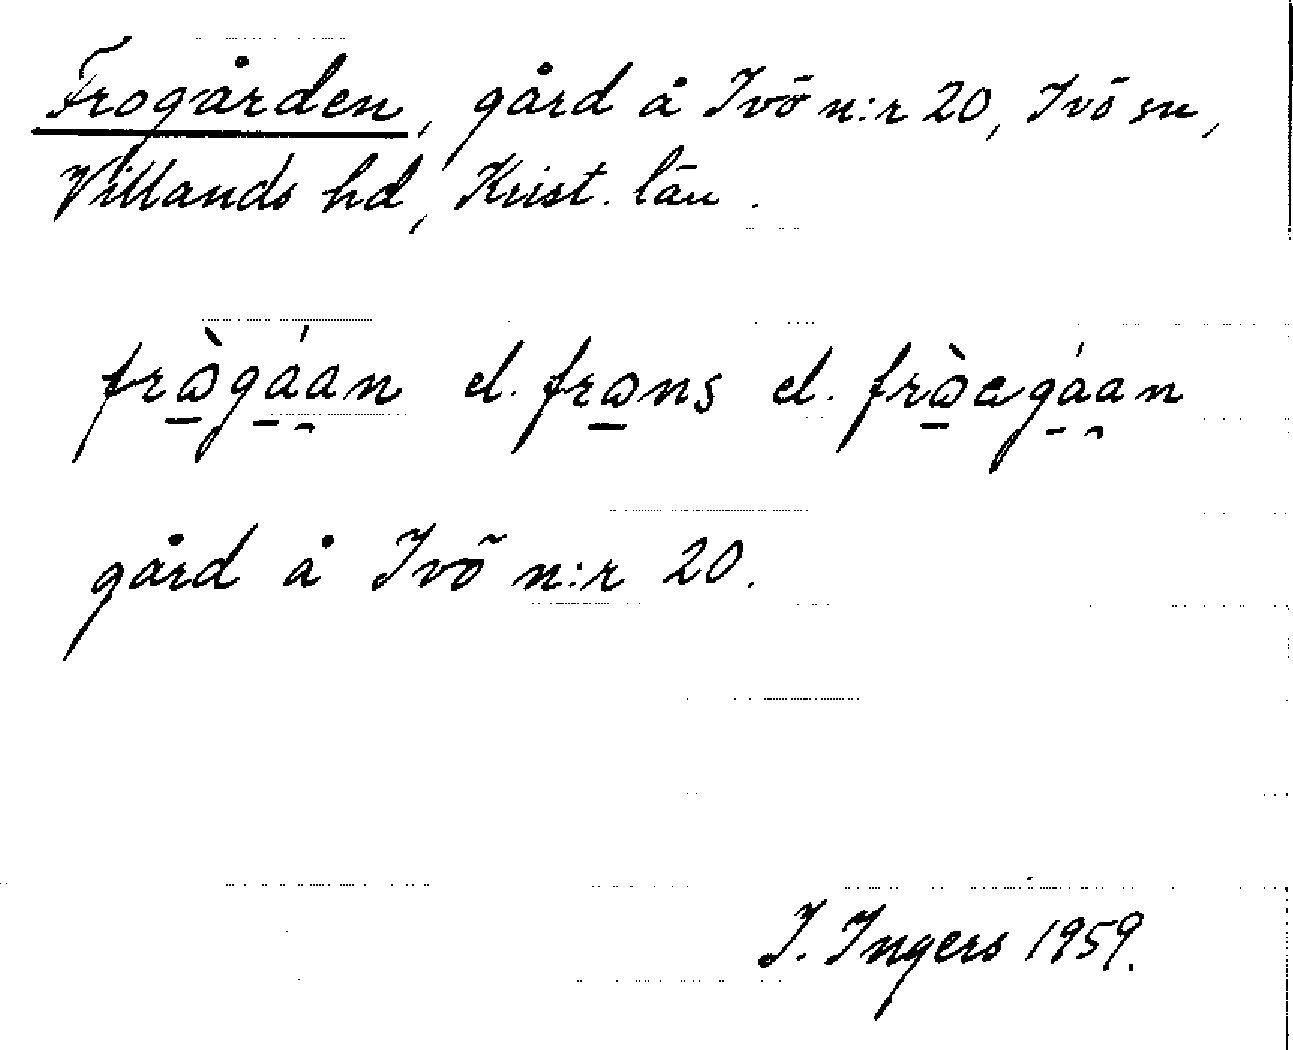 Frogården, gård å Ivö n:r 20, Ivö sn,
Villands hd, Krist. län.
frɷ̠̀gá̠a̯n el. frɷ̠ns el. frɷ̠̀egá̠a̯n
gård å Ivö n:r 20.
I. Ingers 1959.